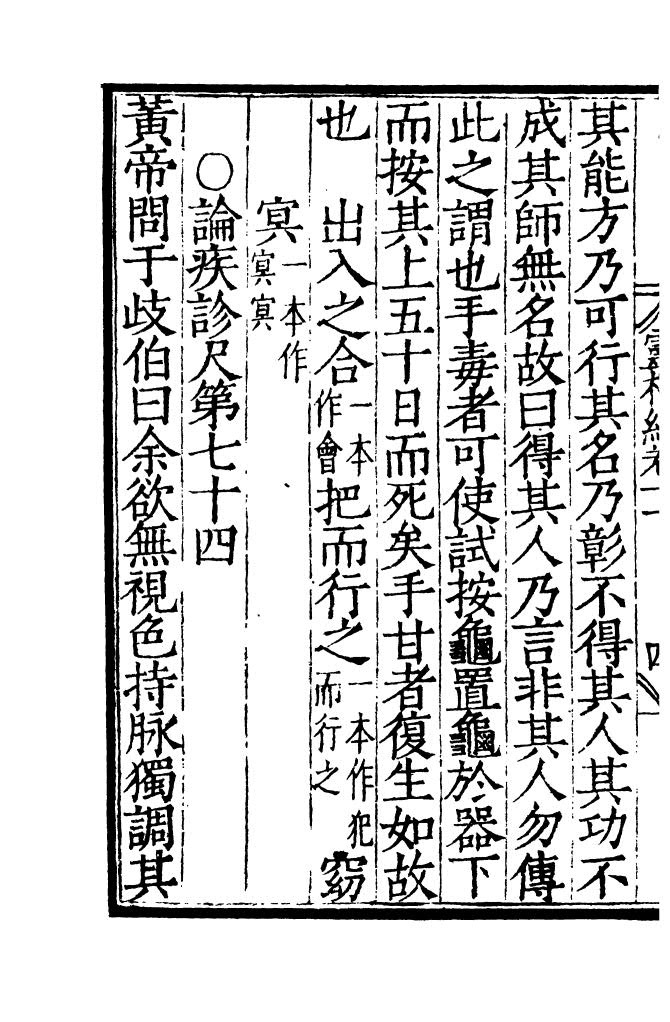 其能方乃可行其名乃彰不得其人其功不
成其師無名故曰得其人乃言非其人勿傳
此之謂也手毒者可使試按龜置龜於器下
而按其上五十日而死矣手甘者復生如故
也　出入之合一本作會把而行之一本作犯而行之窈
冥一本作㝠㝠
○論疾診尺第七十四
黃帝問于歧伯曰余欲無視色持脉獨調其